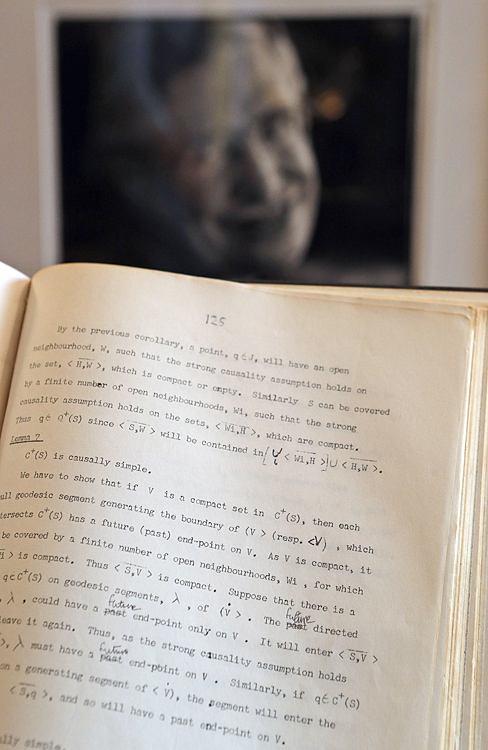 125
By the previous corollary, a point, q ∈ J, will have an open
neighbourhood, W, such that the strong causality assumption holds on
the set, < H,W̅ >, which is compact or empty. Similarly S can be covered
by a finite number of open neighbourhoods, Wi, such that the strong
causality assumption holds on the sets, < W̅i̅,H >, which are compact.
Thus q ∈ Q⁺(S) since < S̅,W̅ > will be contained in [ ∪ < W̅i̅,H̅ > ] ∪ < H̅,W̅ >.
Lemma 7
C⁺(S) is causally simple.
We have to show that if V is a compact set in C⁺(S), then each
ull geodesic segment generating the boundary of ⟨V > (resp. <V⟩ , which
tersects C⁺(S) has a future (past) end-point on V. As V is compact, it
be covered by a finite number of open neighbourhoods, Wi , for which
> is compact. Thus < S̅,V̅ > is compact. Suppose that there is a
q ∈ C⁺(S) on geodesic segments, λ , of ⟨V > . The past future directed
, λ , could have a past future end-point only on V . It will enter < S̅,V̅ >
leave it again. Thus, as the strong causality assumption holds
>, λ must have a past future end-point on V . Similarly, if q ∈ C⁺(S)
on a generating segment of < V⟩, the segment will enter the
< S̅,q >, and so will have a past end-point on V.
ally simple.